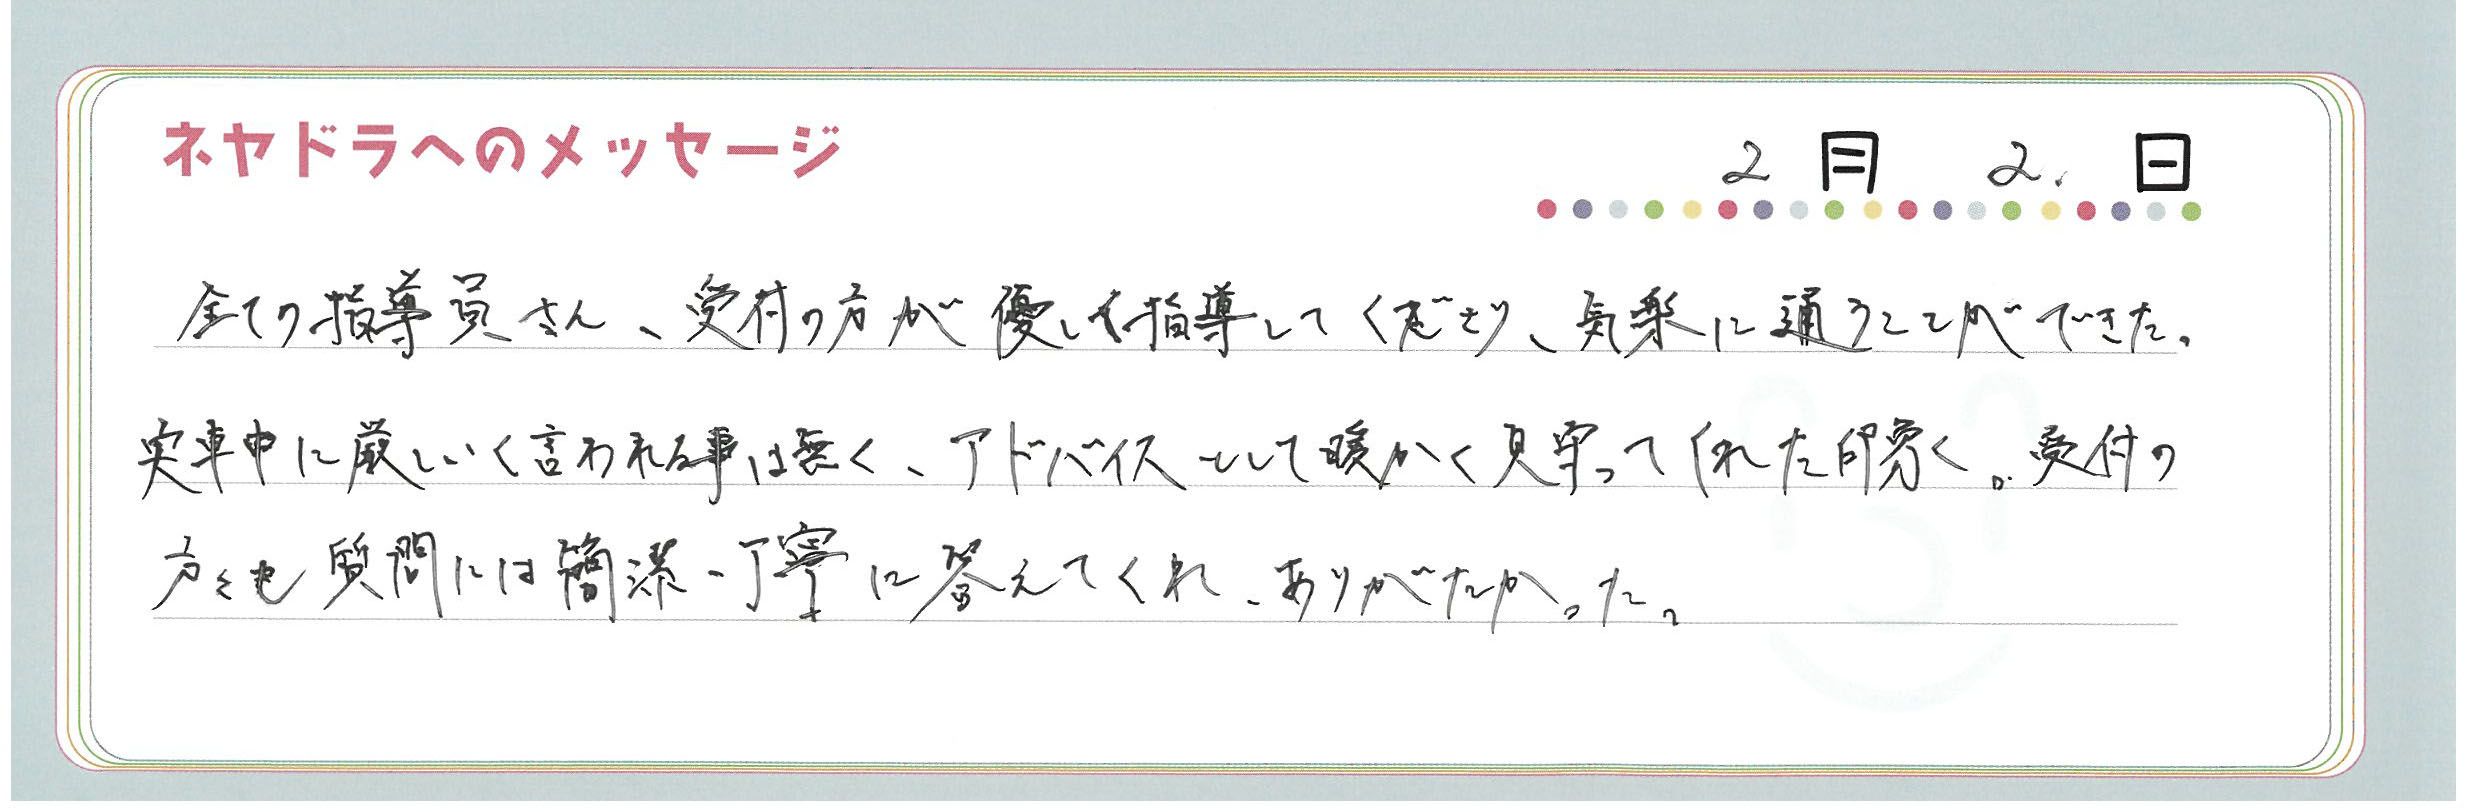 ネヤドラへのメッセージ
2月 2.日
全ての指導員さん、受付の方が優しく指導してくださり、気楽に通うことができた。
実車中に厳しいく言われる事は無く、アドバイスとして暖かく見守ってくれた印象く。受付の
方々も質問には簡潔・丁寧に答えてくれ、ありがたかった。